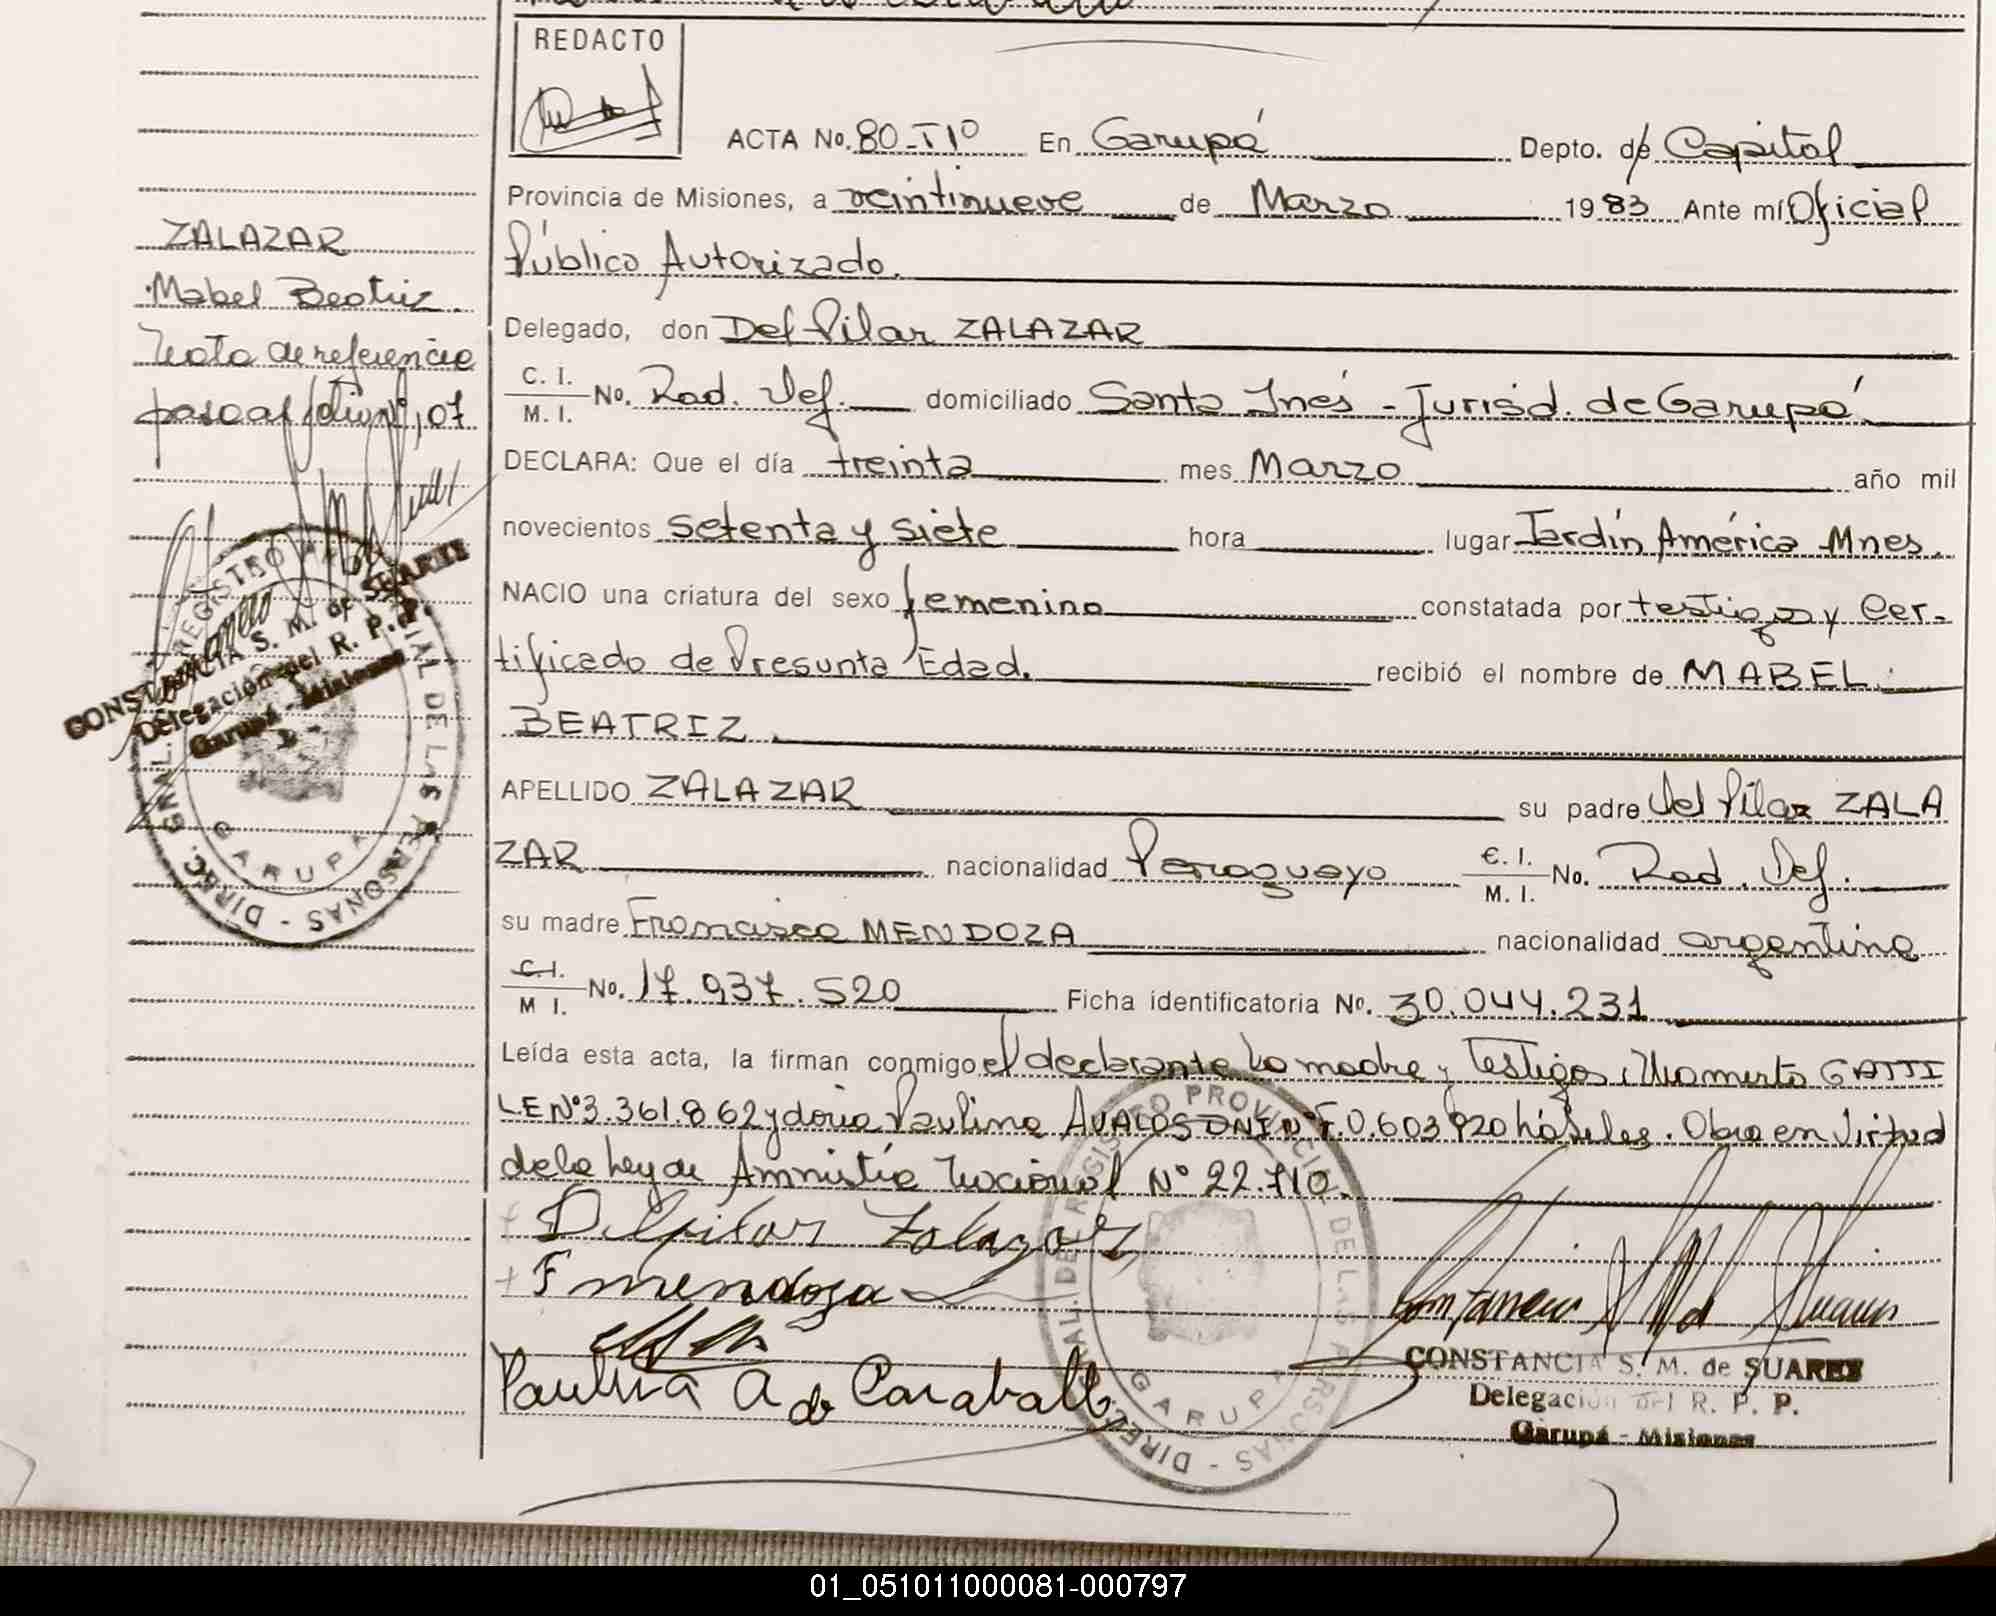 REDACTO
ACTA No. 80-Tº1º En Garupá Depto. de Capital
Provincia de Misiones, a veintinueve de Marzo 1983 Ante mí Oficial
Público Autorizado.
Delegado, don Del Pilar ZALAZAR
C. I.
M. I. No. Rad. Def. domiciliado Santa Inés - Jurisd. de Garupá
DECLARA: Que el día treinta mes Marzo año mil
novecientos setenta y siete hora lugar Jardín América Mnes.
NACIO una criatura del sexo femenino constatada por testigos y Cer-
tificado de Presunta Edad. recibió el nombre de MABEL
BEATRIZ.
APELLIDO ZALAZAR su padre Del Pilar ZALA
ZAR nacionalidad Paraguayo C. I. M. I. No. Rad. Def.
su madre Francisca MENDOZA nacionalidad argentina
C. I.
M I. No. 17.937.520 Ficha identificatoria No. 30.044.231
Leída esta acta, la firman conmigo el declarante la madre y Testigos, GATTI
LE Nº 3.361.862 y doña Paulina AVALOS DNI Nº F.0.603.920 hábiles. Obra en Virtud
de la Ley de Amnistía Nacional Nº 22.710.
Delpilar Zalazar
F mendoza
Paulina A de Caraballo
CONSTANCIA S. M. de SUAREZ
Delegación del R. P. P.
Garupá - Misiones
DIREC. GRAL. DE REGISTRO PROVINCIAL DE LAS PERSONAS
GARUPA
ZALAZAR
Mabel Beatriz.
Nota de referencia
pasa al folio nº 107
CONSTANCIA S. M. de SUAREZ
Delegación del R. P. P.
Garupá - Misiones
DIREC. GRAL. REGISTRO PROVINCIAL DE LAS PERSONAS
GARUPA
01_051011000081-000797